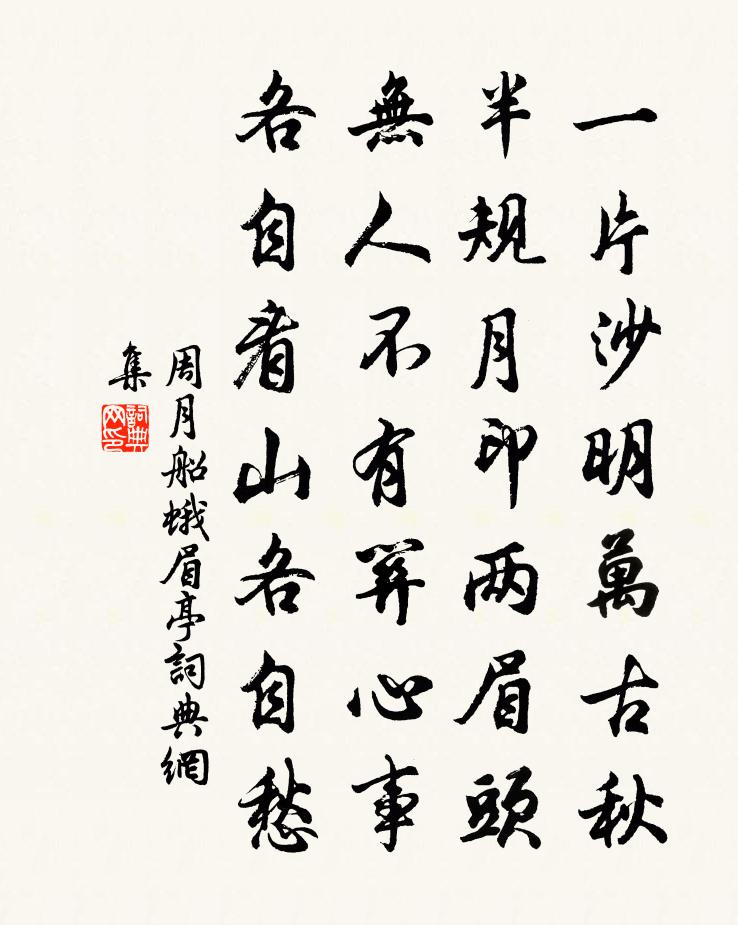 一片沙明萬古秋
半規月印两眉頭
無人不有關心事
各自看山各自愁
周月船蛾眉亭詞典網
集
詞典网印